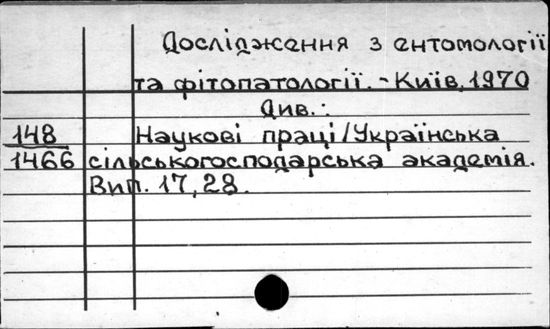 Дослідження з ентомології
та фітопатології. - Київ, 1970
Див.:
148 Наукові праці/Українська
1466 сільськогосподарська академія.
Вип. 17, 28.